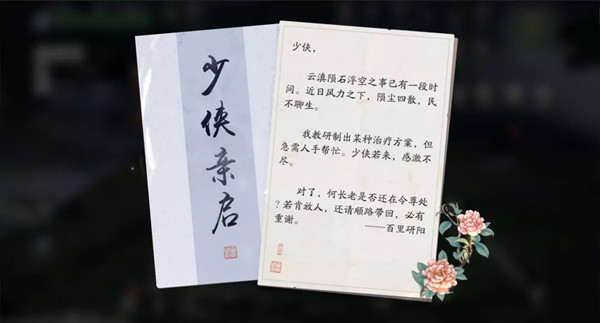 少侠亲启
少侠，
云滇陨石浮空之事已有一段时
间。近日风力之下，陨尘四散，民
不聊生。
我教研制出某种治疗方案，但
急需人手帮忙。少侠若来，感激不
尽。
对了，何长老是否还在令尊处
？若肯放人，还请顺路带回，必有
重谢。
——百里研阳